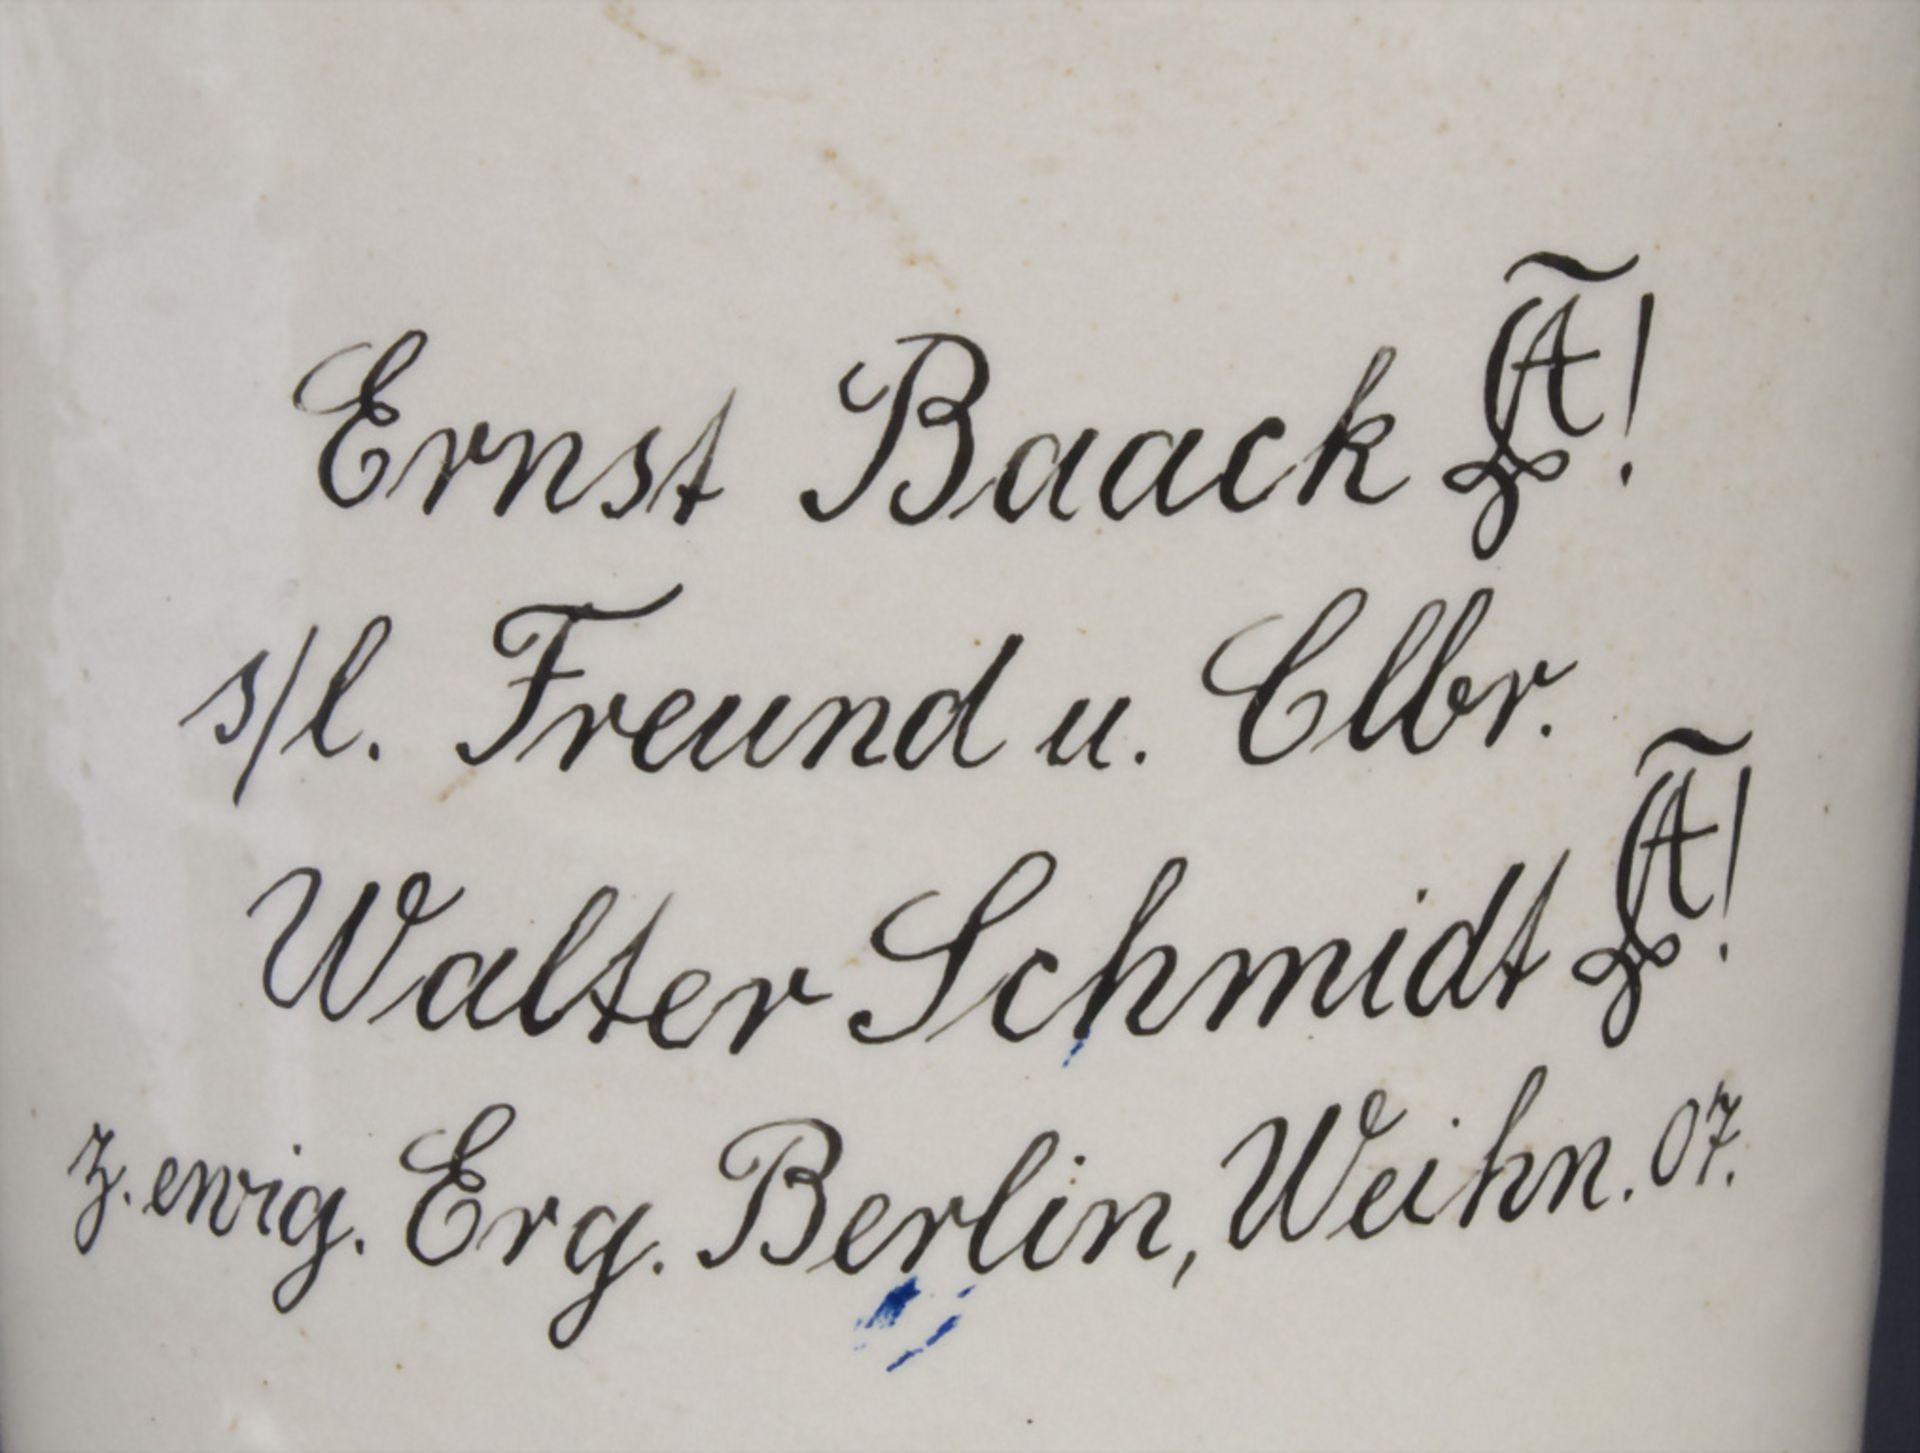 Ernst Baack !
s/l. Freund u. Clbr.
Walter Schmidt !
z. ewig. Erg. Berlin, Weihn. 07.